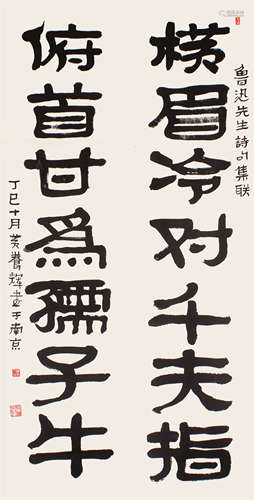 魯迅先生詩句集联
横眉冷对千夫指
俯首甘為孺子牛
丁巳十月黄養輝書于南京